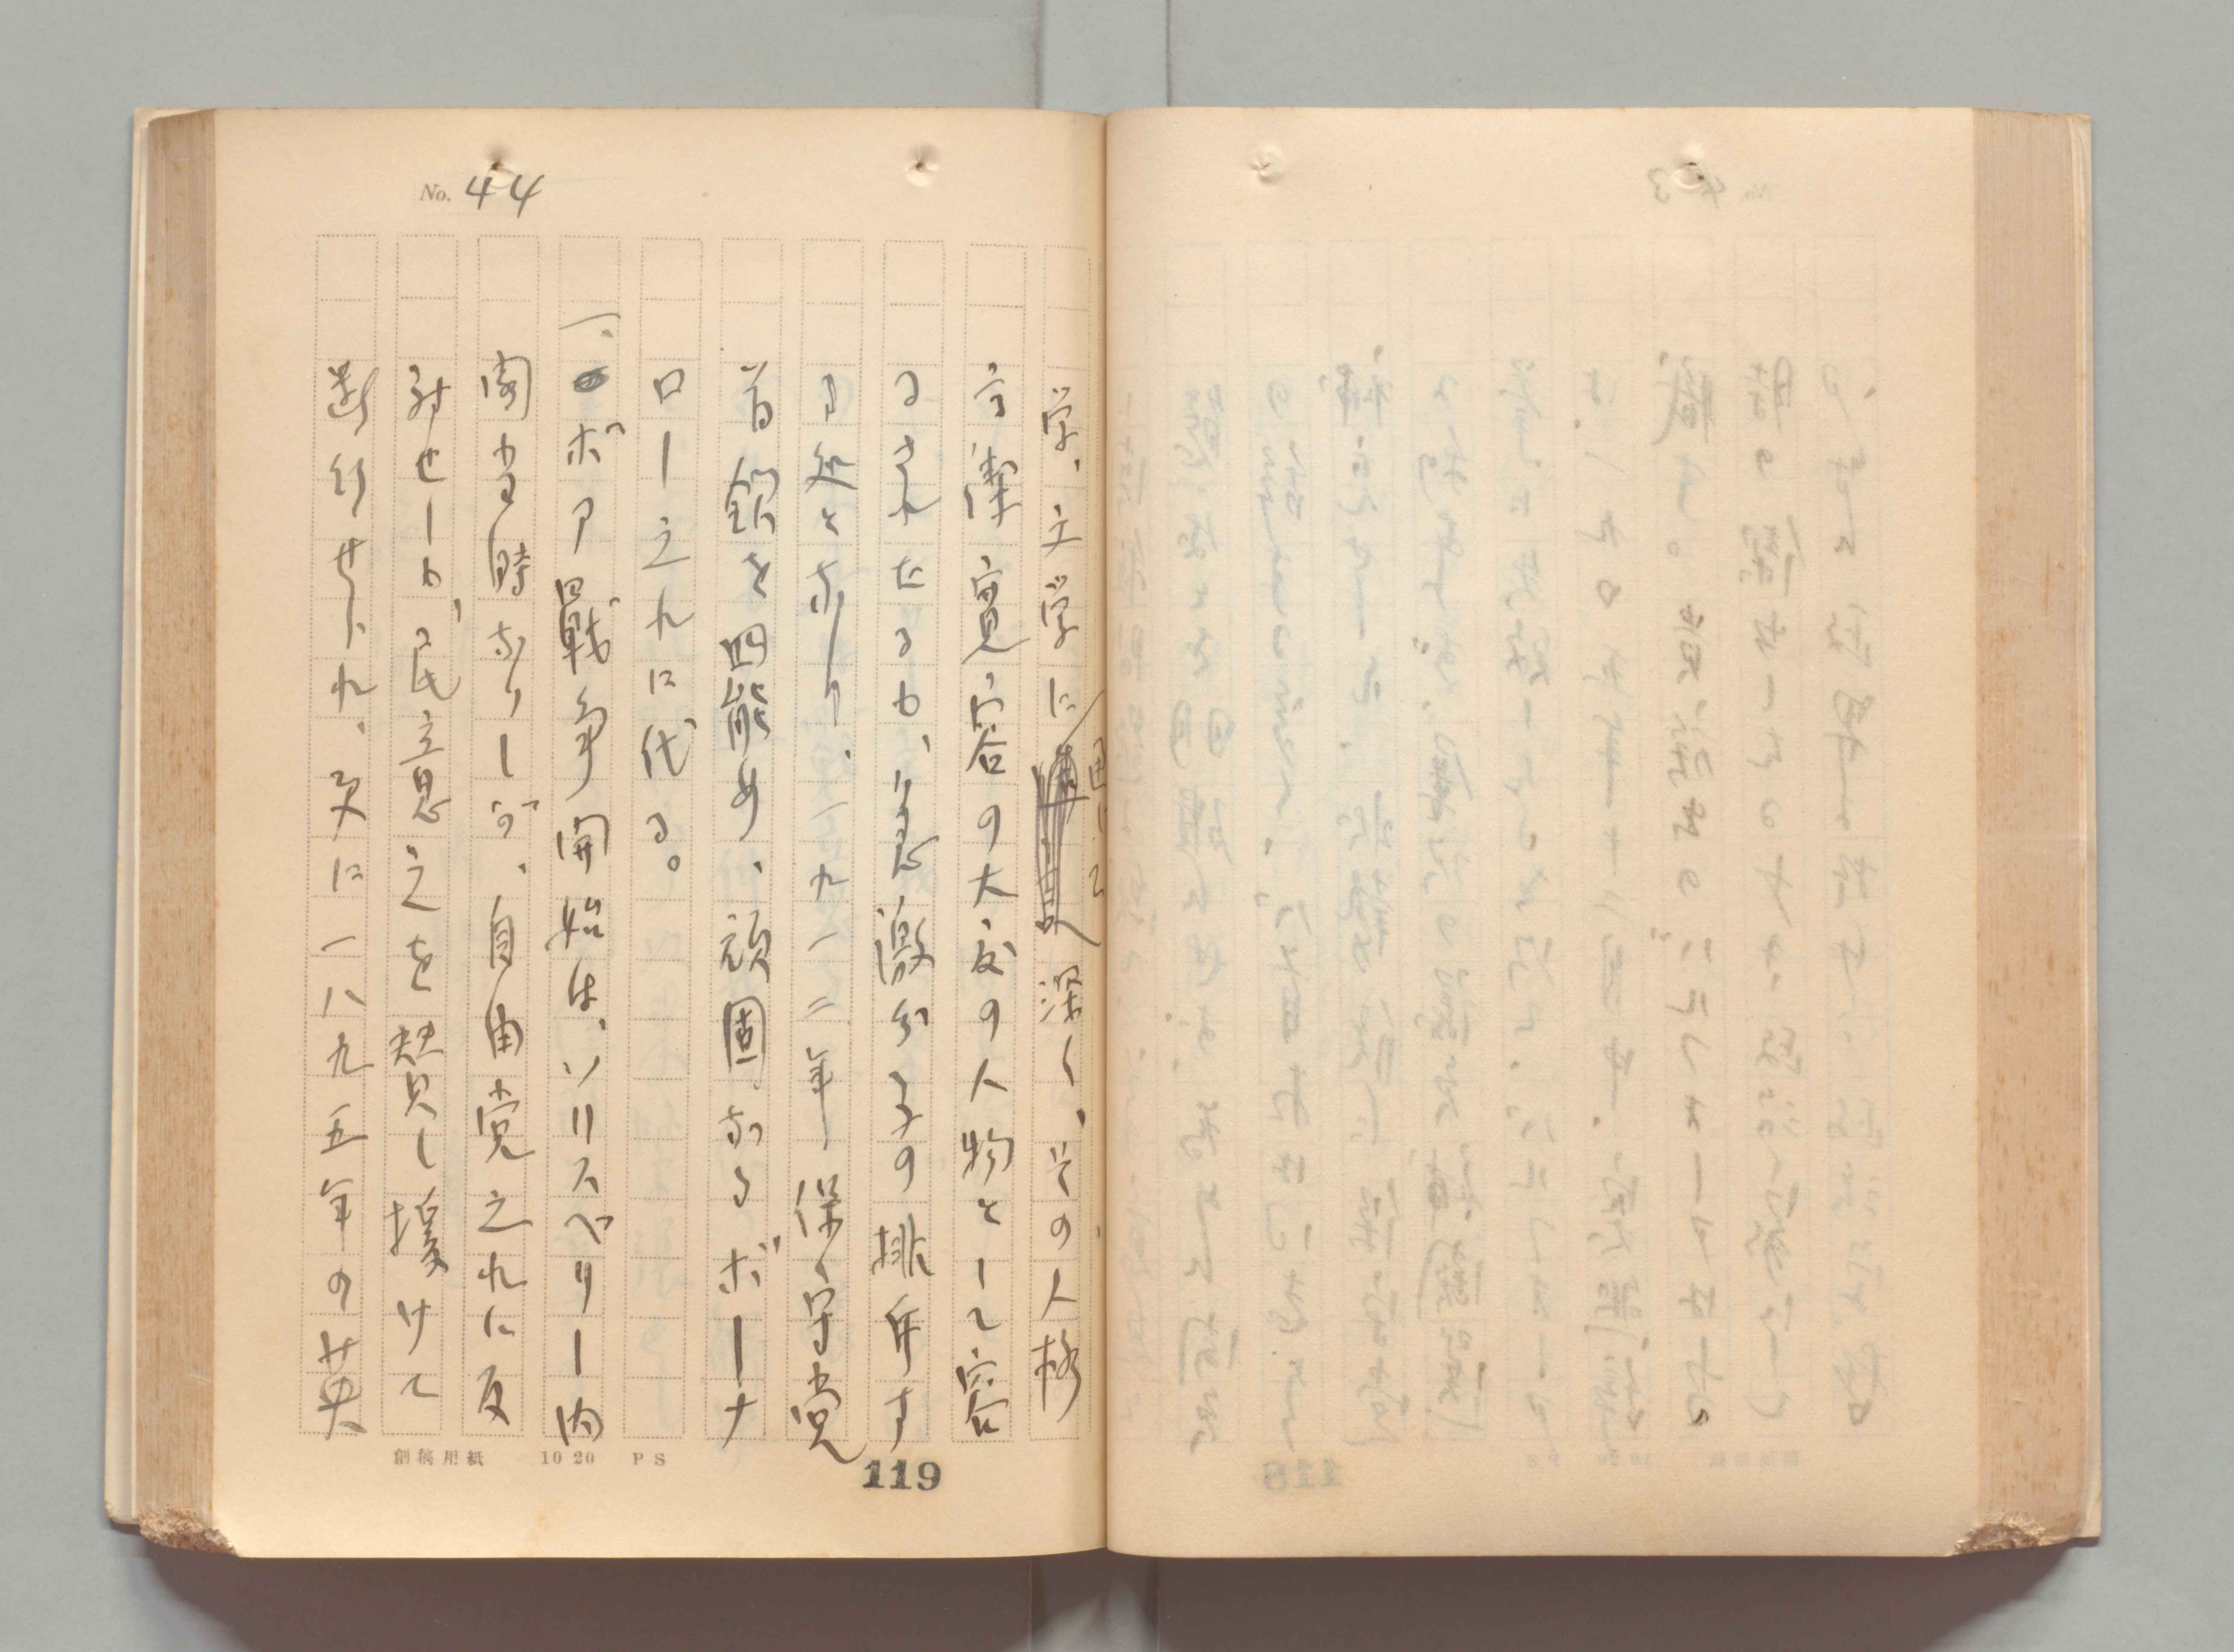 No. 44
学、文学に 深く、その人格
寛容の大度の人物として容
るされたるか、急激分子の排斥す
る処となり、一九一二年保守党
首領を罷め、頑固なるボーナ
ロー之れに代る。
一、ボア戦争開始は、ソリスベリー内
閣当時なりしが、自由党之れに反
対せしが民意之を賛し援けて
遂行せられ、更に一八九五年の英
創稿用紙 10 20 PS
119